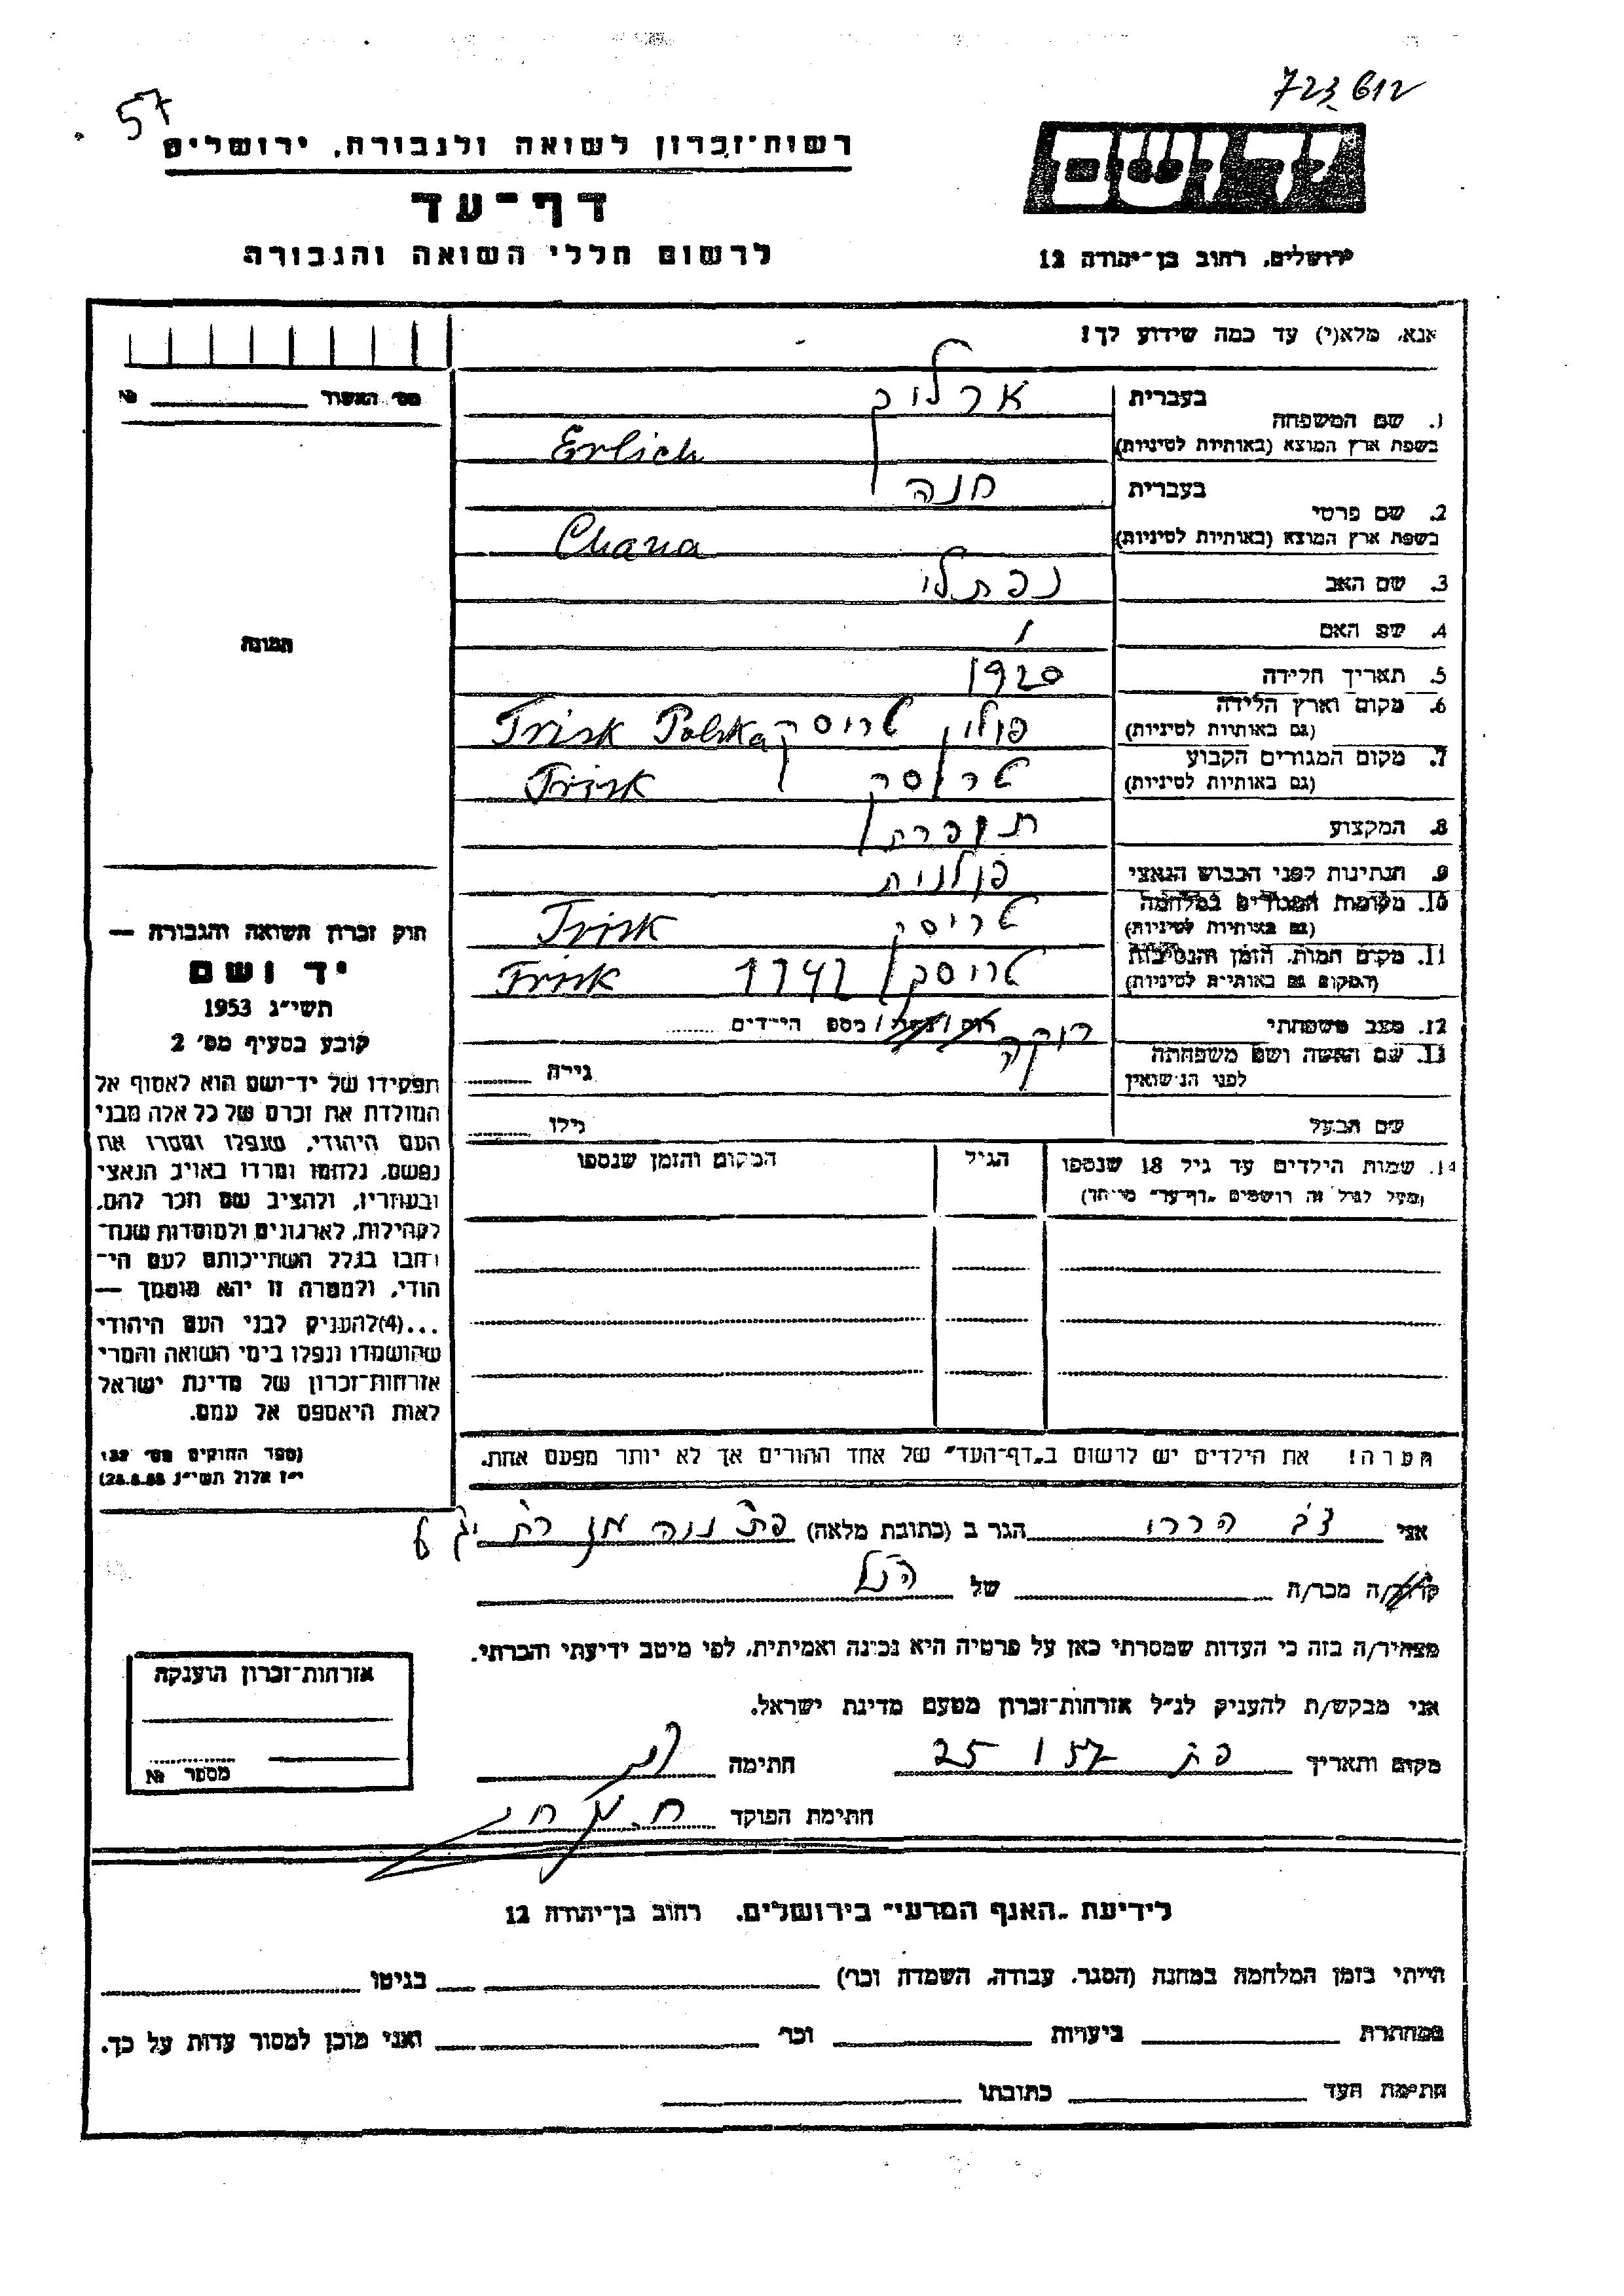 57
723 612
רשות־זכרון לשואה ולגבורה, ירושלים
דף־עד
לרשום חללי השואה והגבורה
יד ושם
ירושלים, רחוב בן־יהודה 12
אנא, מלא(י) עד כמה שידוע לך!
מס׳ האשור № 
1. שם המשפחה
בעברית
ארליך
בשפת ארץ המוצא (באותיות לטיניות)
Erlich
2. שם פרטי
בעברית
חנה
בשפת ארץ המוצא (באותיות לטיניות)
Chana
3. שם האב
נפתלי
4. שם האם
/
5. תאריך הלידה
1920
6. מקום וארץ הלידה
(גם באותיות לטיניות)
פולין טריסק Trisk Polska
7. מקום המגורים הקבוע
(גם באותיות לטיניות)
טריסק Trisk
8. המקצוע
תופרת
9. הנתינות לפני הכבוש הנאצי
פולנית
10. מקומות המגורים במלחמה
(גם באותיות לטיניות)
טריסק Trisk
11. מקום המות, הזמן והנסיבות
(המקום גם באותיות לטיניות)
טריסק 1942 Trisk
12. מצב משפחתי
רווקה
רוק / נשוי / מספר הילדים
13. שם האשה ושם משפחתה
לפני הנישואין
גילה
שם הבעל
גילו
14. שמות הילדים עד גיל 18 שנספו
(מעל לגיל זה רושמים „דף־עד״ מיוחד)
הגיל
המקום והזמן שנספו
תמונה
חוק זכרון השואה והגבורה —
יד ושם
תשי״ג 1953
קובע בסעיף מס׳ 2
תפקידו של יד־ושם הוא לאסוף אל
המולדת את זכרם של כל אלה מבני
העם היהודי, שנפלו ומסרו את
נפשם, נלחמו ומרדו באויב הנאצי
ובעוזריו, ולהציב שם וזכר להם,
לקהילות, לארגונים ולמוסדות שנח־
רבו בגלל השתייכותם לעם הי־
הודי, ולמטרה זו יהא מוסמך —
...(4)להעניק לבני העם היהודי
שהושמדו ונפלו בימי השואה והמרי
אזרחות־זכרון של מדינת ישראל
לאות היאספם אל עמם.
(ספר החוקים מס׳ 132
י״ז אלול תשי״ג 28.8.53)
הערה! את הילדים יש לרשום ב„דף־העד״ של אחד ההורים אך לא יותר מפעם אחת.
אני הררי הגר ב (כתובת מלאה)
קרוב/ה מכר/ה של הנ״ל
מצהיר/ה בזה כי העדות שמסרתי כאן על פרטיה היא נכונה ואמיתית, לפי מיטב ידיעתי והכרתי.
אני מבקש/ת להעניק לנ״ל אזרחות־זכרון מטעם מדינת ישראל.
מקום ותאריך פת 25 1 57 חתימה
חתימת הפוקד
אזרחות־זכרון הוענקה
מספר №
לידיעת „האגף המדעי״ בירושלים, רחוב בן־יהודה 12
הייתי בזמן המלחמה במחנה (הסגר, עבודה, השמדה וכו׳) בגיטו
במחתרת ביערות וכו׳ ואני מוכן למסור עדות על כך.
חתימת העד כתובתו